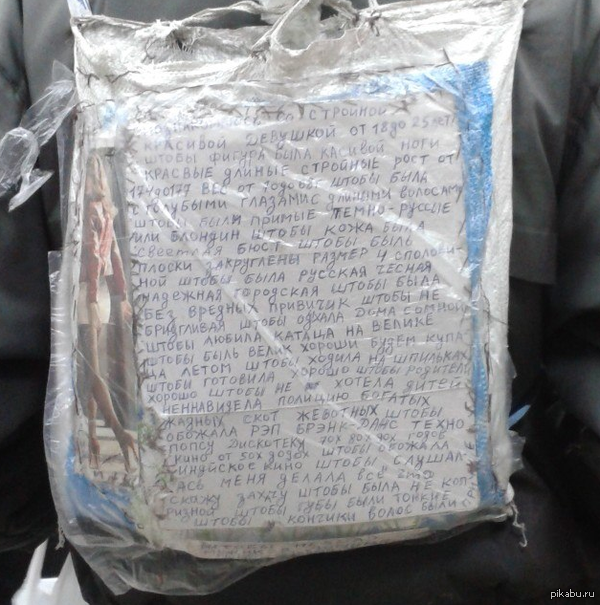 ПОЗНАКОМЛЮСЬ СО СТРОЙНОЙ
КРАСИВОЙ ДЕВУШКОЙ ОТ 18 ДО 25 ЛЕТ
ШТОБЫ ФИГУРА БЫЛА КАСИВОЙ НОГИ
КРАСВЫЕ ДЛИНЫЕ СТРОЙНЫЕ РОСТ ОТ
174 ДО 177 ВЕС ОТ ШТОБЫ БЫЛА
С ГОЛУБЫМИ ГЛАЗАМИ С ДЛИНЫМИ ВОЛОСАМИ
ШТОБЫ БЫЛИ ПРИМЫЕ ТЕМНО-РУССЫЕ
ИЛИ БЛОНДИН ШТОБЫ КОЖА БЫЛА
СВЕТЛАЯ БЮСТ ШТОБЫ БЫЛЬ
ПЛОСКИ ЗАКРУГЛЕНЫ РАЗМЕР 4 СПОЛОВИ-
НОЙ ШТОБЫ БЫЛА РУССКАЯ ЧЕСНАЯ
НАДЕЖНАЯ ГОРОДСКАЯ ШТОБЫ БЫЛА
БЕЗ ВРЕДНЫХ ПРИВИЧИК ШТОБЫ НЕ
БРИДГЛИВАЯ ШТОБЫ ДОМА СОМНОЙ
ШТОБЫ ЛЮБИЛА КАТАЦА НА ВЕЛИКЕ
ШТОБЫ БЫЛЬ ВЕЛИК ХОРОШИ БУДЕМ КУПА
ЦА ЛЕТОМ ШТОБЫ ХОДИЛА НА ШПИЛЬКАХ
ШТОБИ ГОТОВИЛА ХОРОШО ШТОБЫ РОДИТЕЛИ
ХОРОШО ШТОБЫ НЕ ХОТЕЛА ДИТЕЙ
НЕННАВИДЕЛА ПОЛИЦИЮ БОГАТЫХ
ЖАЗНЫХ СКОТ ЖЕВОТНЫХ ШТОБЫ
ОБОЖАЛА РЭП БРЭНК-ДАНС ТЕХНО
ПОПСУ ДИСКОТЕКУ 70Х 80Х 90Х ГОДОВ
КИНО ОТ 50Х ГОДОХ ШТОБЫ ОБОЖАЛА
ИНДИЙСКОЕ КИНО ШТОБЫ СЛУШАЛ
АСЬ МЕНЯ ДЕЛАЛА ВСЁ ЧТО
СКАЖУ ЗАХЧУ ШТОБЫ БЫЛА НЕ КАП
РИЗНОЙ ШТОБЫ ГУБЫ БЫЛИ ТОНКИЕ
ШТОБЫ КОНЧИКИ ВОЛОС БЫЛИ
pikabu.ru